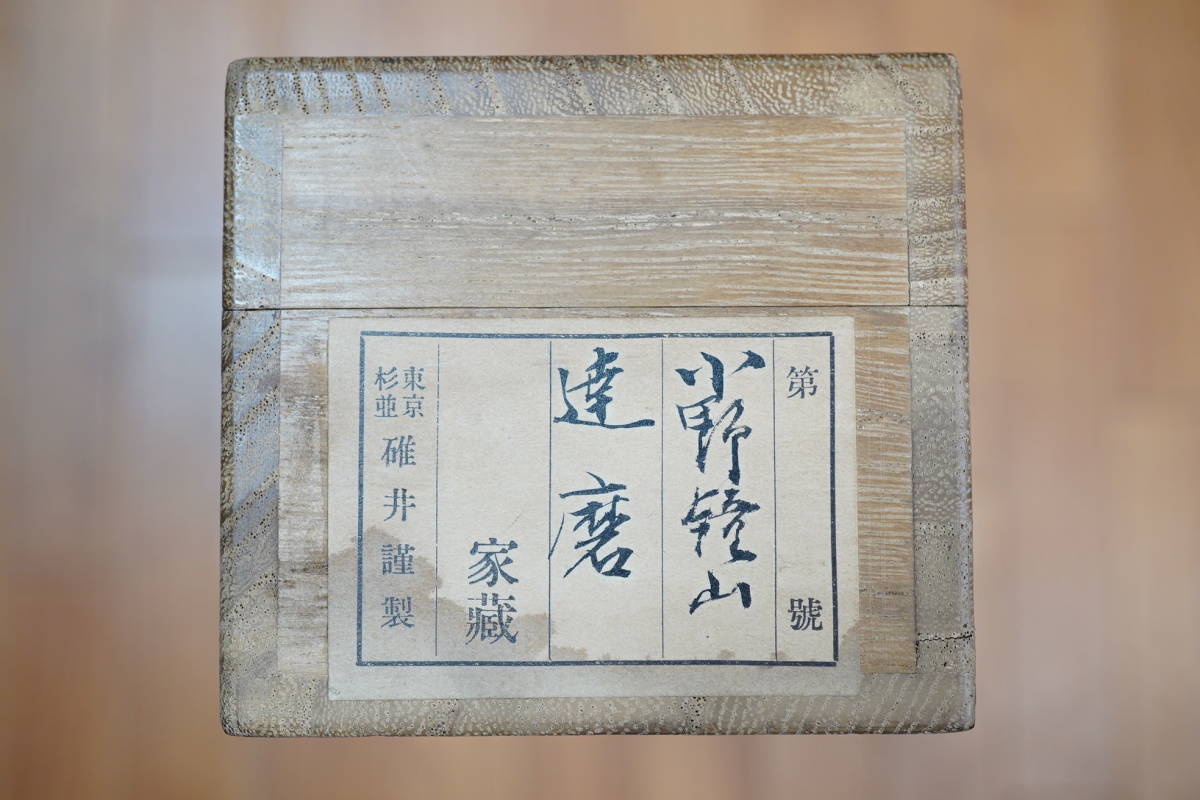 第 號
小野鐘山
達磨
家藏
東京
杉並
碓井謹製